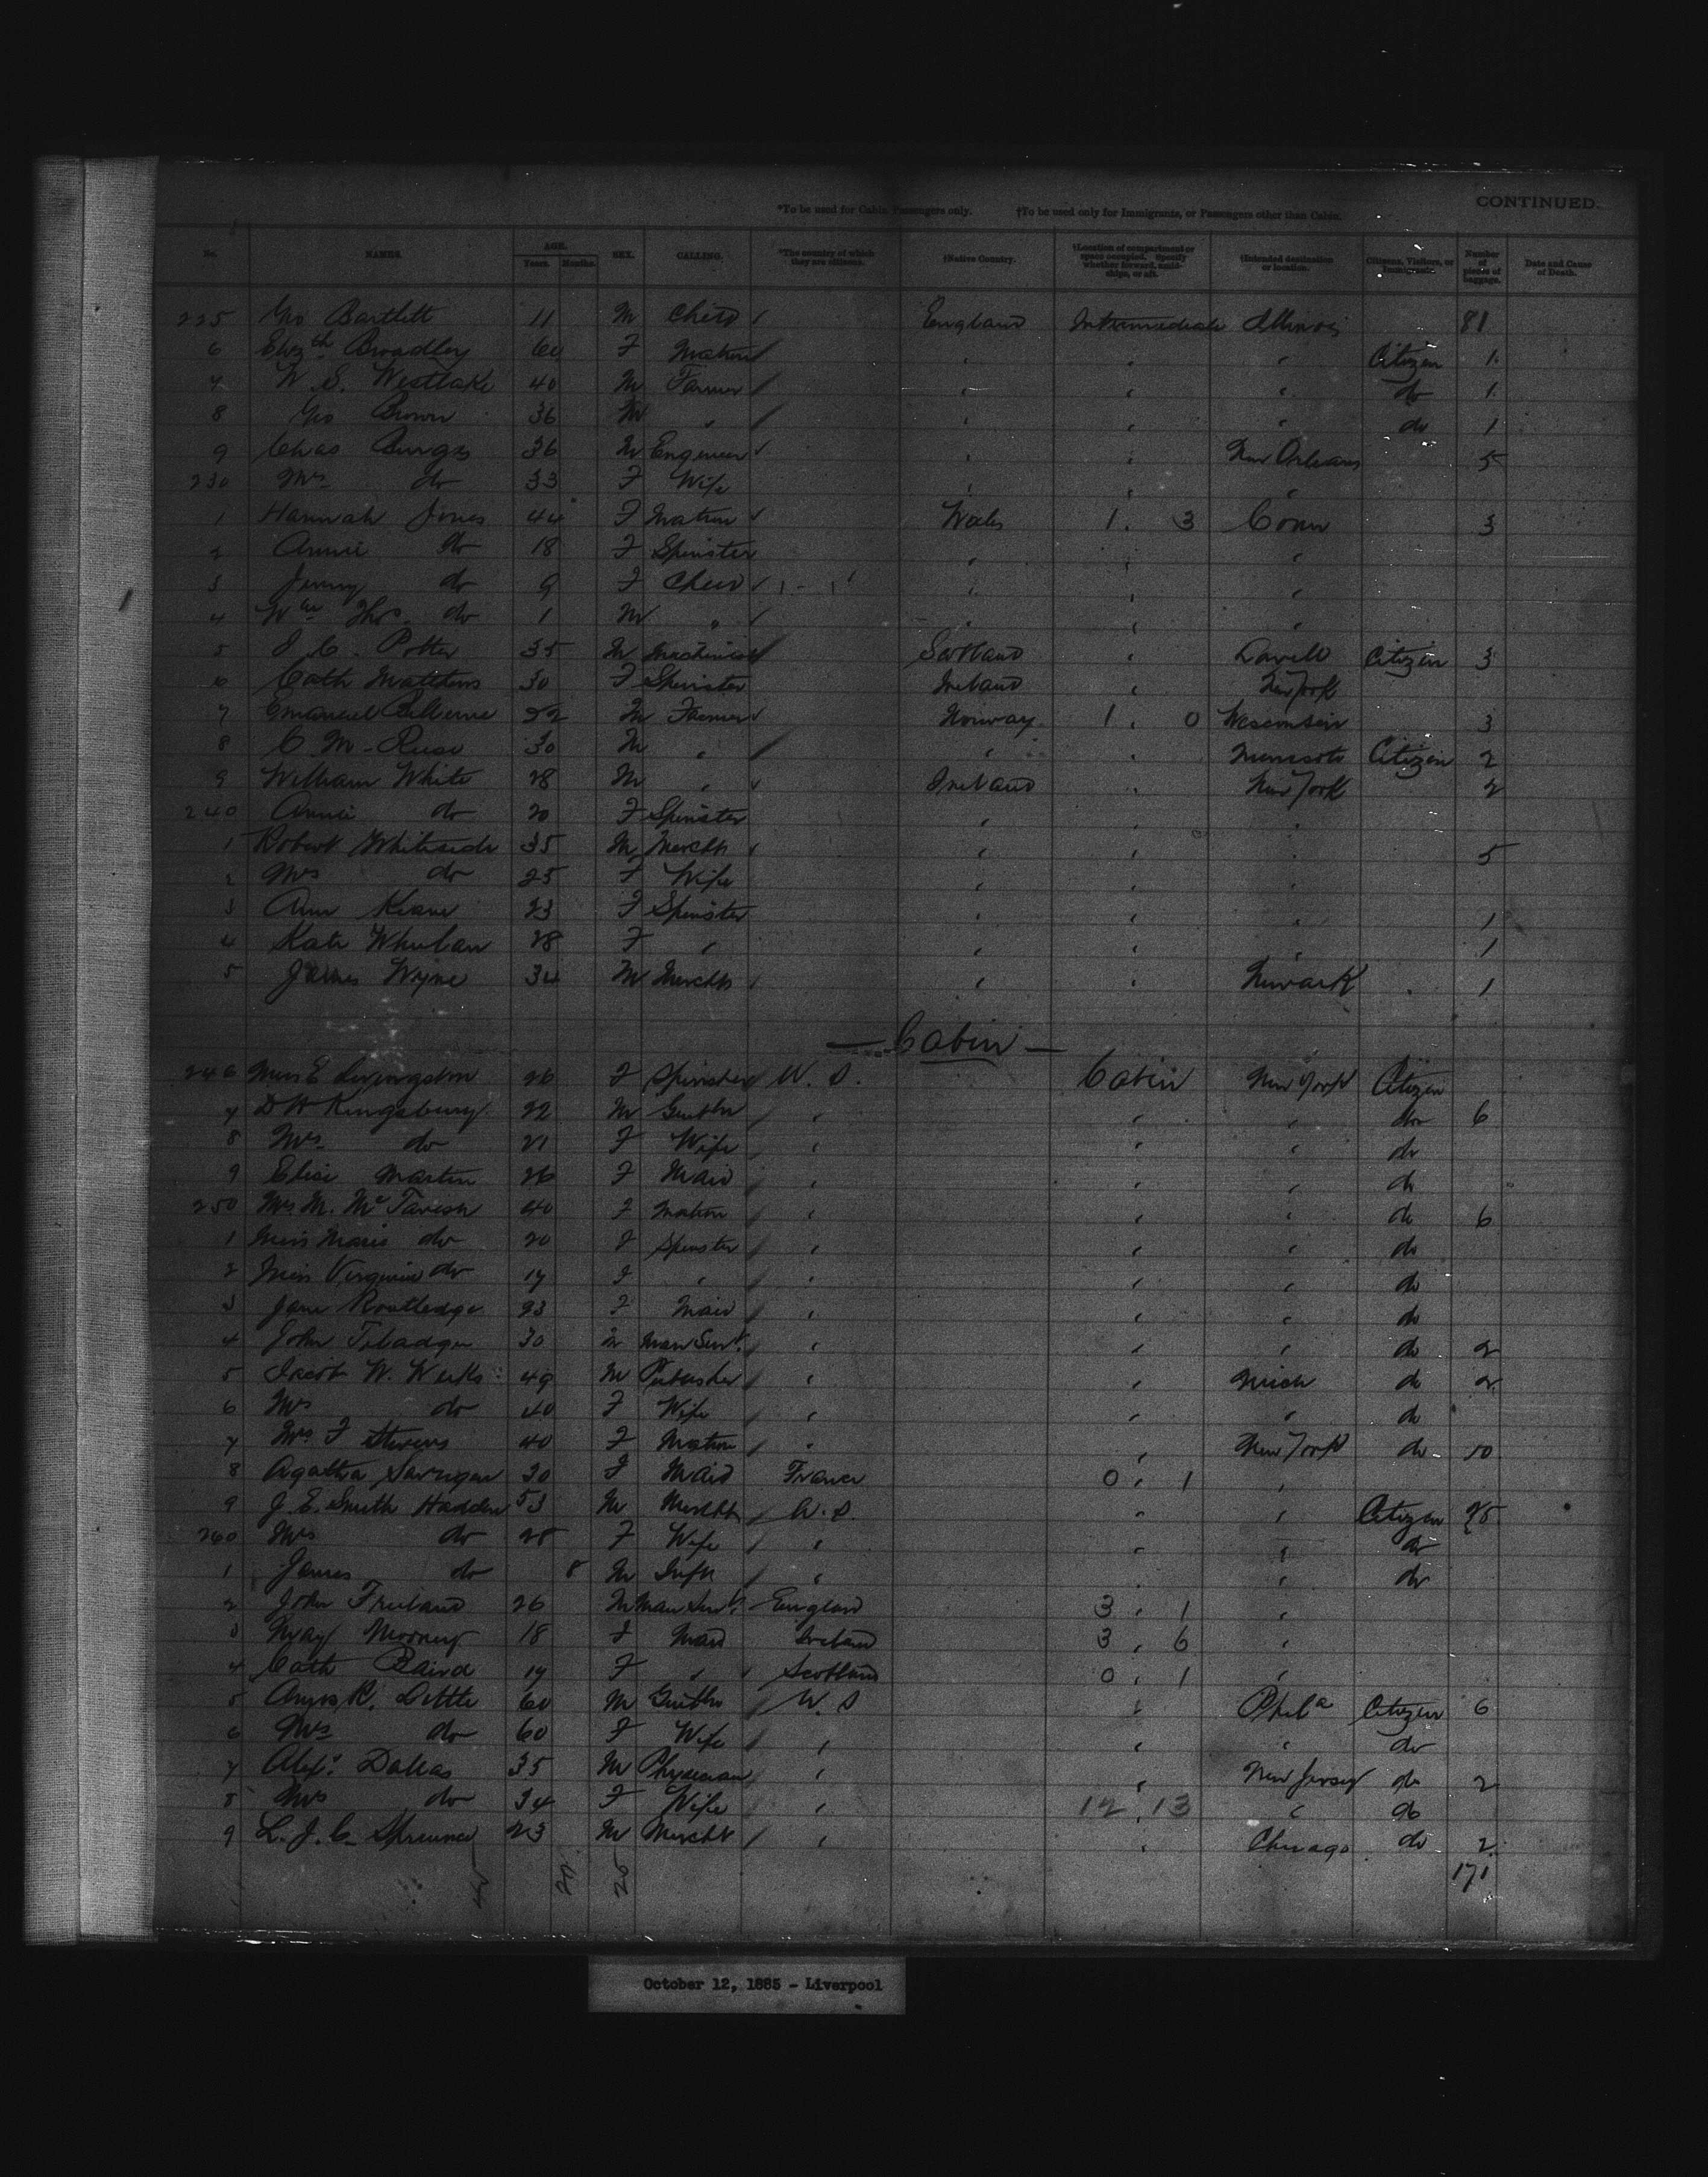 CONTINUED.
*To be used for Cabin Passengers only. †To be used only for Immigrants, or Passengers other than Cabin.
No. NAMES. AGE. Years. Months. SEX. CALLING. *The country of which they are citizens. †Native Country. †Location of compartment or space occupied. Specify whether forward, amidships, or aft. †Intended destination or location. Citizens, Visitors, or Immigrants. Number of pieces of baggage. Date and Cause of Death.
225 Geo Bartlett 11 M Child England Intermediate Illinois 81
6 Elizth Broadley 60 F Matron " " " Citizen 1
7 W. S. Westlake 40 M Farmer " " " do 1
8 Geo Brown 36 M " " " " do 1
9 Chas Burgs 36 M Engineer " " New Orleans 5
230 Mrs do 33 F Wife " " "
1 Hannah Jones 44 F Matron Wales 1. 3 Conn 3
2 Annie do 18 F Spinster " " "
3 Jenny do 9 F Child " " "
4 Wm Thos. do 1 M " " " "
5 J. C. Potter 35 M Machinist Scotland " Lowell Citizen 3
6 Cath Matthews 30 F Spinster Ireland " New York
7 Emanuel 22 M Farmer Norway 1. 0 Wisconsin 3
8 C M. 30 M " " " Minnesota Citizen 2
9 William White 28 M " Ireland " New York 2
240 Annie do 20 F Spinster " " "
1 Robert Whiteside 35 M Mercht " " " 5
2 Mrs do 25 F Wife " " "
3 Ann Keane 23 F Spinster " " " 1
4 Kate Whelan 28 F " " " " 1
5 James Wyne 34 M Mercht " " Newark 1
— Cabin —
246 Miss E Livingston 26 F Spinster U. S. Cabin New York Citizen
7 D H Kingsbury 22 M Gentln " " " do 6
8 Mrs do 21 F Wife " " " do
9 Elise Martin 26 F Maid " " " do
250 Mrs M. McTavish 40 F Matron " " " do 6
1 Miss Marie do 20 F Spinster " " " do
2 Miss Virginia do 17 F " " " " do
3 Jane Routledge 23 F Maid " " " do
4 John 30 M Man Servt " " " do 2
5 Jacob W. Weeks 49 M Publisher " " Mich do 2
6 Mrs do 40 F Wife " " " do
7 Mrs F Stevens 40 F Matron " " New York do 10
8 Agatha 30 F Maid France 0. 1 "
9 J. E. Smith Hadden 53 M Mercht U. S. " " Citizen 25
260 Mrs do 28 F Wife " " " do
1 James do 8 M Inft " " " do
2 John Freeland 26 M Man Servt England 3. 1 "
3 May Mooney 18 F Maid Ireland 3. 6 "
4 Cath Baird 17 F " Scotland 0. 1 "
5 Amos R. Little 60 M Gentln U. S " Phila Citizen 6
6 Mrs do 60 F Wife " " " do
7 Alexr Dallas 35 M Physician " " New Jersey do 2
8 Mrs do 34 F Wife " 12. 13 " do
9 L. J. C. 23 M Mercht " " Chicago do 2
171
October 12, 1885 - Liverpool